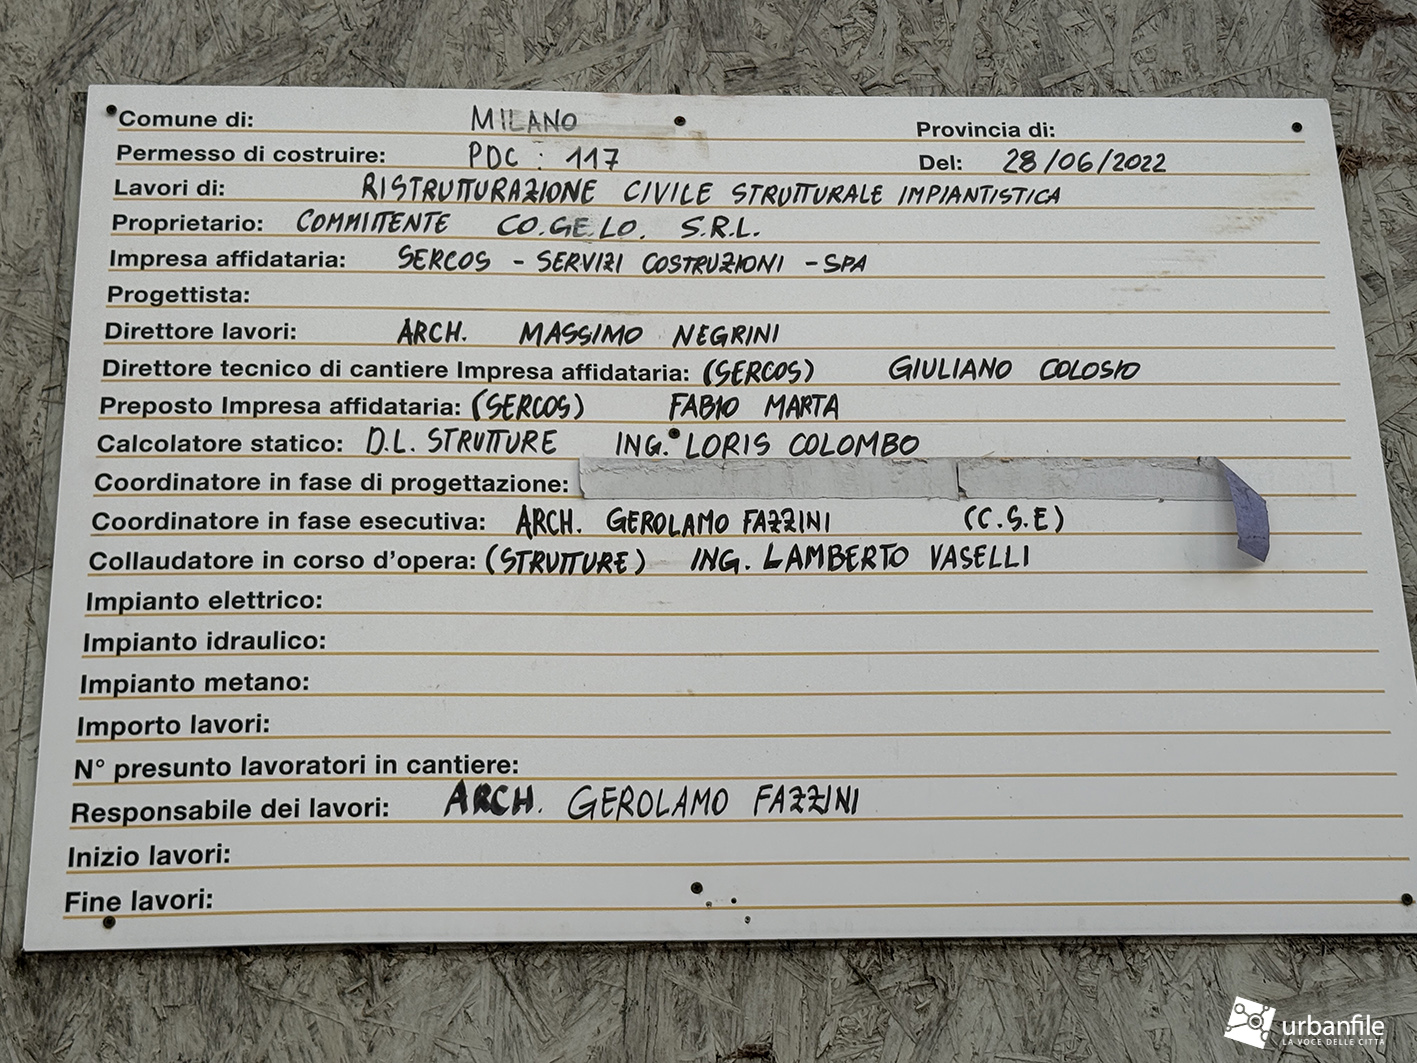 Comune di: MILANO Provincia di:
Permesso di costruire: PDC : 117 Del: 28/06/2022
Lavori di: RISTRUTTURAZIONE CIVILE STRUTTURALE IMPIANTISTICA
Proprietario: COMMITTENTE CO.GE.LO. S.R.L.
Impresa affidataria: SERCOS - SERVIZI COSTRUZIONI - SPA
Progettista:
Direttore lavori: ARCH. MASSIMO NEGRINI
Direttore tecnico di cantiere Impresa affidataria: (SERCOS) GIULIANO COLOSIO
Preposto Impresa affidataria: (SERCOS) FABIO MARTA
Calcolatore statico: D.L. STRUTTURE ING. LORIS COLOMBO
Coordinatore in fase di progettazione:
Coordinatore in fase esecutiva: ARCH. GEROLAMO FAZZINI (C.S.E)
Collaudatore in corso d'opera: (STRUTTURE) ING. LAMBERTO VASELLI
Impianto elettrico:
Impianto idraulico:
Impianto metano:
Importo lavori:
N° presunto lavoratori in cantiere:
Responsabile dei lavori: ARCH. GEROLAMO FAZZINI
Inizio lavori:
Fine lavori:
urbanfile
LA VOCE DELLE CITTÀ